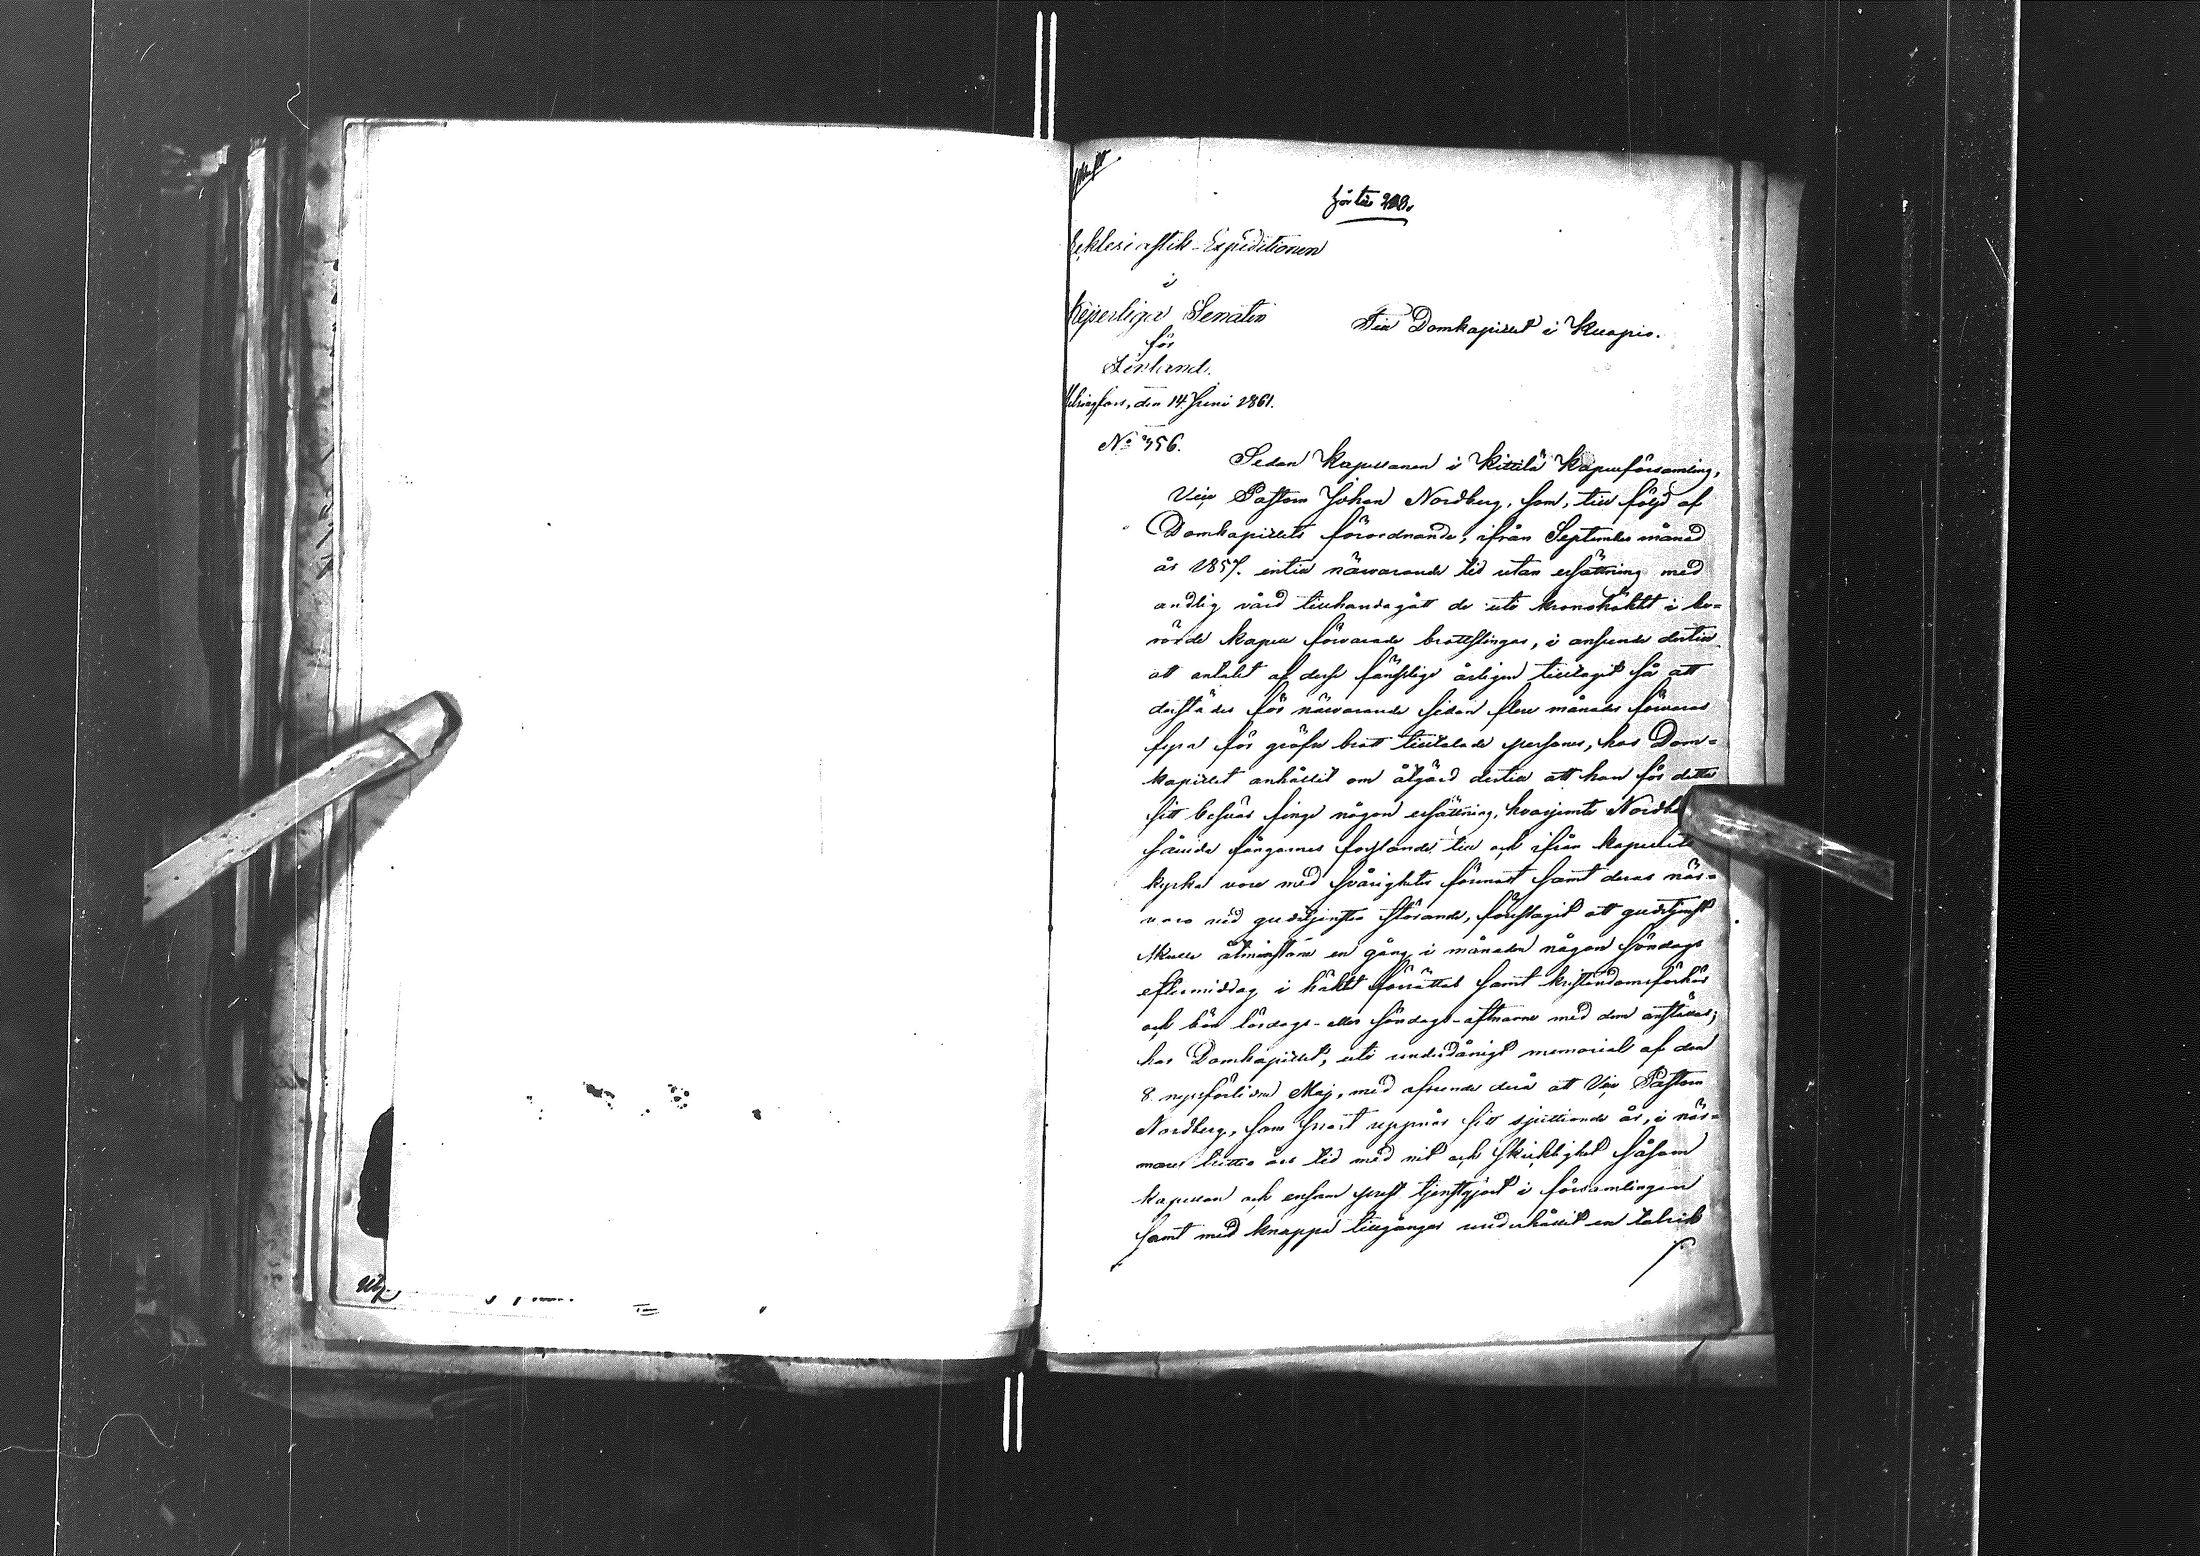 Ecklesiastik-Expeditionen
i
Kejserliga Senaten
för
Finland.
Helsingfors, den 14 Juni 1861.
No 356.
Till Domkapitlet i Kuopio.
Sedan Kapellanen i Kittilä Kapellförsamling,
Vice Pastorn Johan Nordberg, som, till följd af
Domkapitlets förordnande, ifrån September månad
år 1857 intill närvarande tid utan ersättning med
andlig vård tillhandagått de uti kronohäktet i be-
rörde kapell förvarade brottslingar, i anseende dertill
att antalet af desse fängslige årligen tilltagit så att
derstädes för närvarande sedan flere månader förvaras
fyra för gröfre brott tilltalade personer, hos Dom-
kapitlet anhållit om åtgärd dertill att han för detta
sitt besvär finge någon ersättning, hvarjemte Nordb
fångarnes forslande till och ifrån kapellets
kyrka vore med svårigheter förenadt samt deras när-
varo vid gudstjensten störande, föreslagit att gudstjenst
skulle åtminstone en gång i månaden någon söndags
eftermiddag i häktet förrättas samt kristendomsförhör
och bön lördags- eller söndags-aftnarne med dem anställas;
har Domkapitlet, uti underdånigt memorial af den
8 nyssförlidne Maj, med afseende derå att Vice Pastorn
Nordberg, som snart uppnår sitt sjuttionde år, i när-
mare trettio års tid med nit och skicklighet såsom
kapellan och ensam prest tjenstgjort i församlingen
samt med knappa tillgångar underhållit en talrik